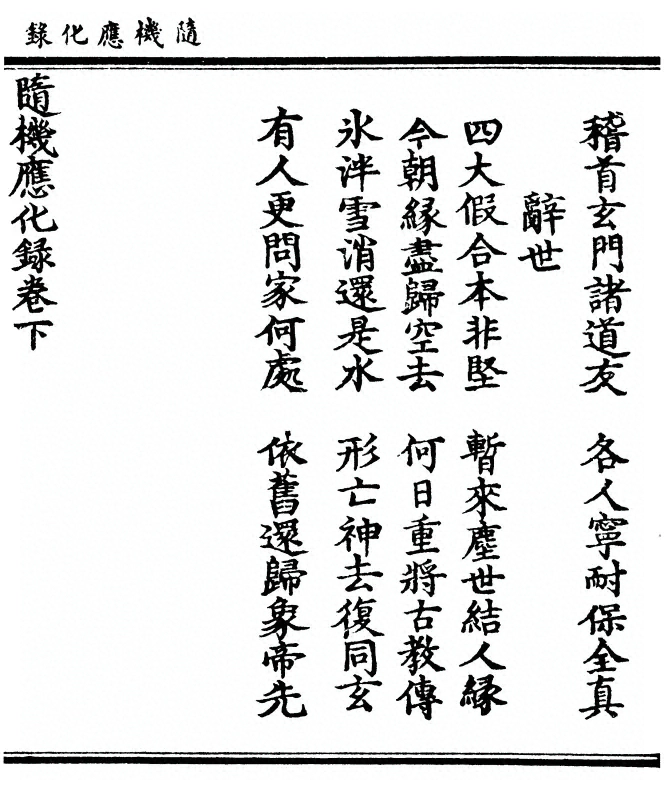 隨機應化錄
稽首玄門諸道友　各人寧耐保全真
辭世
四大假合本非堅　暫來塵世結人緣
今朝緣盡歸空去　何日重將古教傳
氷泮雪消還是水　形亡神去復同玄
有人更問家何處　依舊還歸象帝先
隨機應化錄卷下